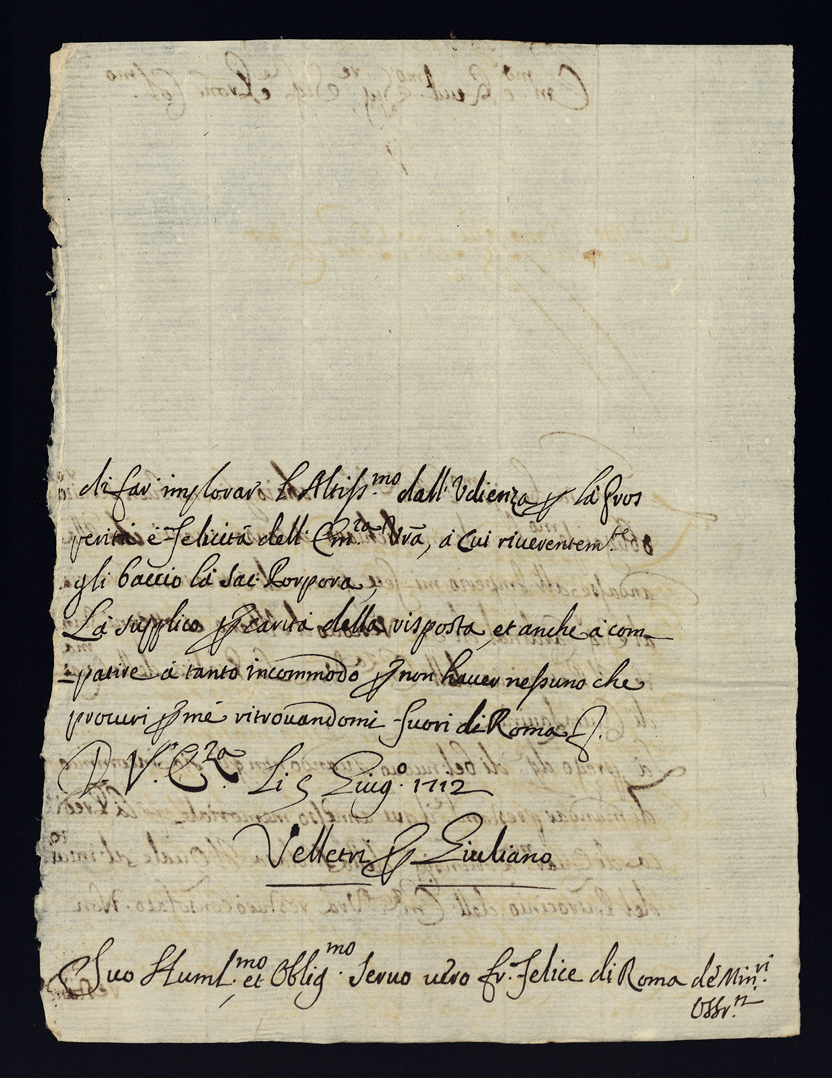 di far implorare l'Altiss.mo dall'Udienza p la Pros
perità e felicità dell'Em.za Vrã, à cui riverentem.te
gli baccio la sac. Porpora,
La supplico p carità della risposta, et anche à com-
=patire à tanto incommodo p non haver nessuno che
procuri p mé ritrovandomi fuori di Roma
D. V. E.za Li 5 Giug.o 1712
Velletri p Giuliano
Suo Huml.mo et Oblig.mo Servo vero fr. Felice di Roma de Min.ri
Ossr.ti